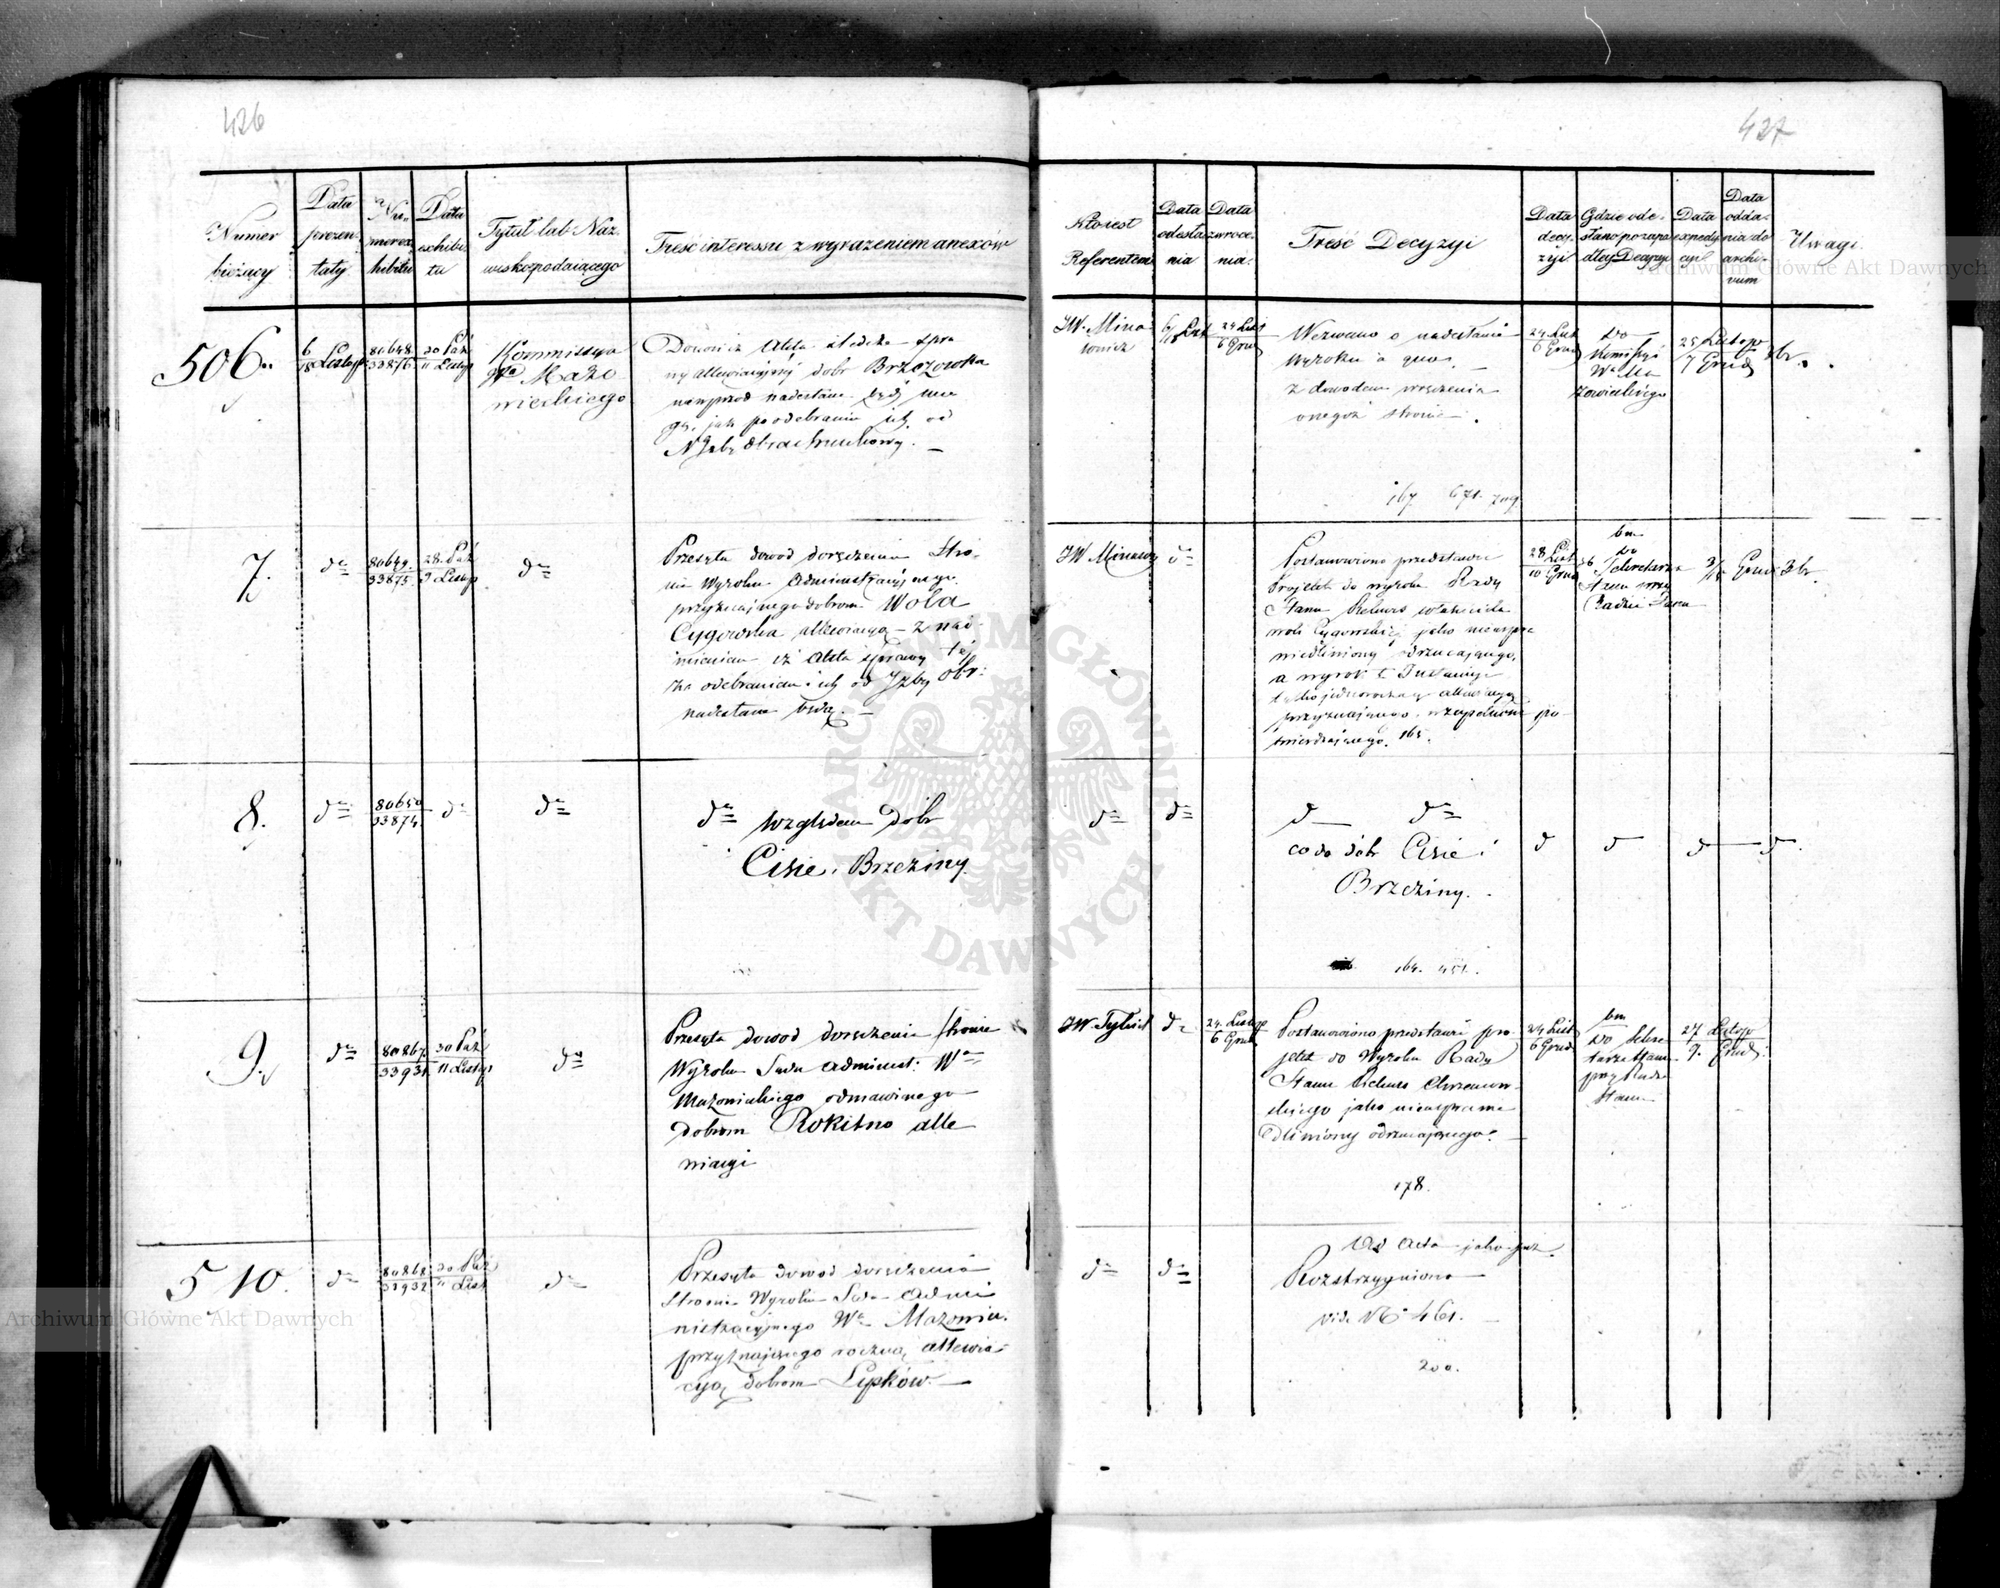 426
Numer
bieżący
Data
prezen-
taty
Nu-
merex
hibitu
Data
exhibi-
tu
Tytuł lub Naz-
wisko podaiącego
Treść interessu z wyrażeniem anexów
506.
6/18 Listop
80648
33876
30 Paź
11 Listop
Kommissya
Wa Mazo
wieckiego
Donosi iż Akta
ny allewiacyjnéj dobr Brzozowka
nadesłane
jak po odebraniu ich od
Obrachunkowy. —
7.
do
80649.
33875.
28. Paź
9 Listop
do
Przesyła dowod doręczenia Stro-
nie Wyroku Administracyjnego
przyznającego dobrom Wola
Cygowska allewiacyą – z nad-
mieniem iż Akta sprawy téj
za odebraniem ich od Izby Obr:
nadesłane będą. —
8.
do
80650
33874.
do
do
do względem Dóbr
Cisie i Brzeziny.
9.
do
80867
33931
30 Paź
11 Listop
do
Przesyła dowod doręczenia stronie
Wyroku Sądu Administ: Wa
Mazowieckiego odmawiaiącego
dobrom Rokitno alle
wiacyi
510.
do
80868
33932
30 Paź
11 List
do
Przesyła dowod doręczenia
Stronie Wyroku Sądu Admi
nistracyjnego Wa Mazowie.
przyznającego roczną allewia-
cyją dobrom Lipków. —
427
Kto iest
Referentem
Data
odesła
nia
Data
zwroce-
nia.
Treść Decyzyi
Data
decy-
zyi
Gdzie ode-
słano po zapa
dłey Decyzyi
Data
expedy
cyi
Data
odda-
nia do
archi-
vum
Uwagi
JW. Mina
sowicz
6/18 List
24 List
6 Grud
Wezwano o nadesłanie
wyroku a quo
z dowodem wręczenia
onegoż stronie.
167. 671.
24 List
6 Grud
Do
Komissyi
Wa Ma
zowieckiego
25 Listop
7 Grud
JW Minasow
do
Postanowiono przedstawić
Projekt do wyroku Rady
Stanu Rekurs właściciela
woli Cygowskiéj jako nieuspra
wiedliwiony odrzucającego,
a wyrok I Instancyi
przyznającego, w zupełności po-
twierdzającego. 165.
28 List
10 Grud
bm
Do
Sekretarza
Stanu przy
Radzie Stanu
3/15 Grud
do
do
do do
co do dóbr Cisie i
Brzeziny.
164. 451.
d
d
d
d
JW. Tykiel
do
24. Listop
6 Grud
Postanowiono przedstawić pro-
jekt do Wyroku Rady
Stanu Rekurs Chrzanow-
skiego jako nieusprawie
dliwiony odrzucającego. —
178.
24 List
6 Grud
bm
Do Sekre
tarza Stanu
przy Radzie
Stanu
27 Listop
9. Grud:
do
do
Ad Acta jako już
Rozstrzygniono
vide No 461.
200.
ARCHIWUM GŁÓWNE AKT DAWNYCH
Archiwum Główne Akt Dawnych
Archiwum Główne Akt Dawnych